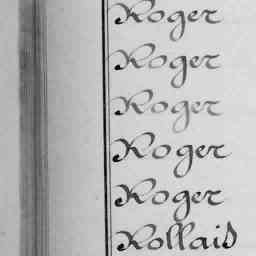 Roger
Roger
Roger
Roger
Roger
Rollais